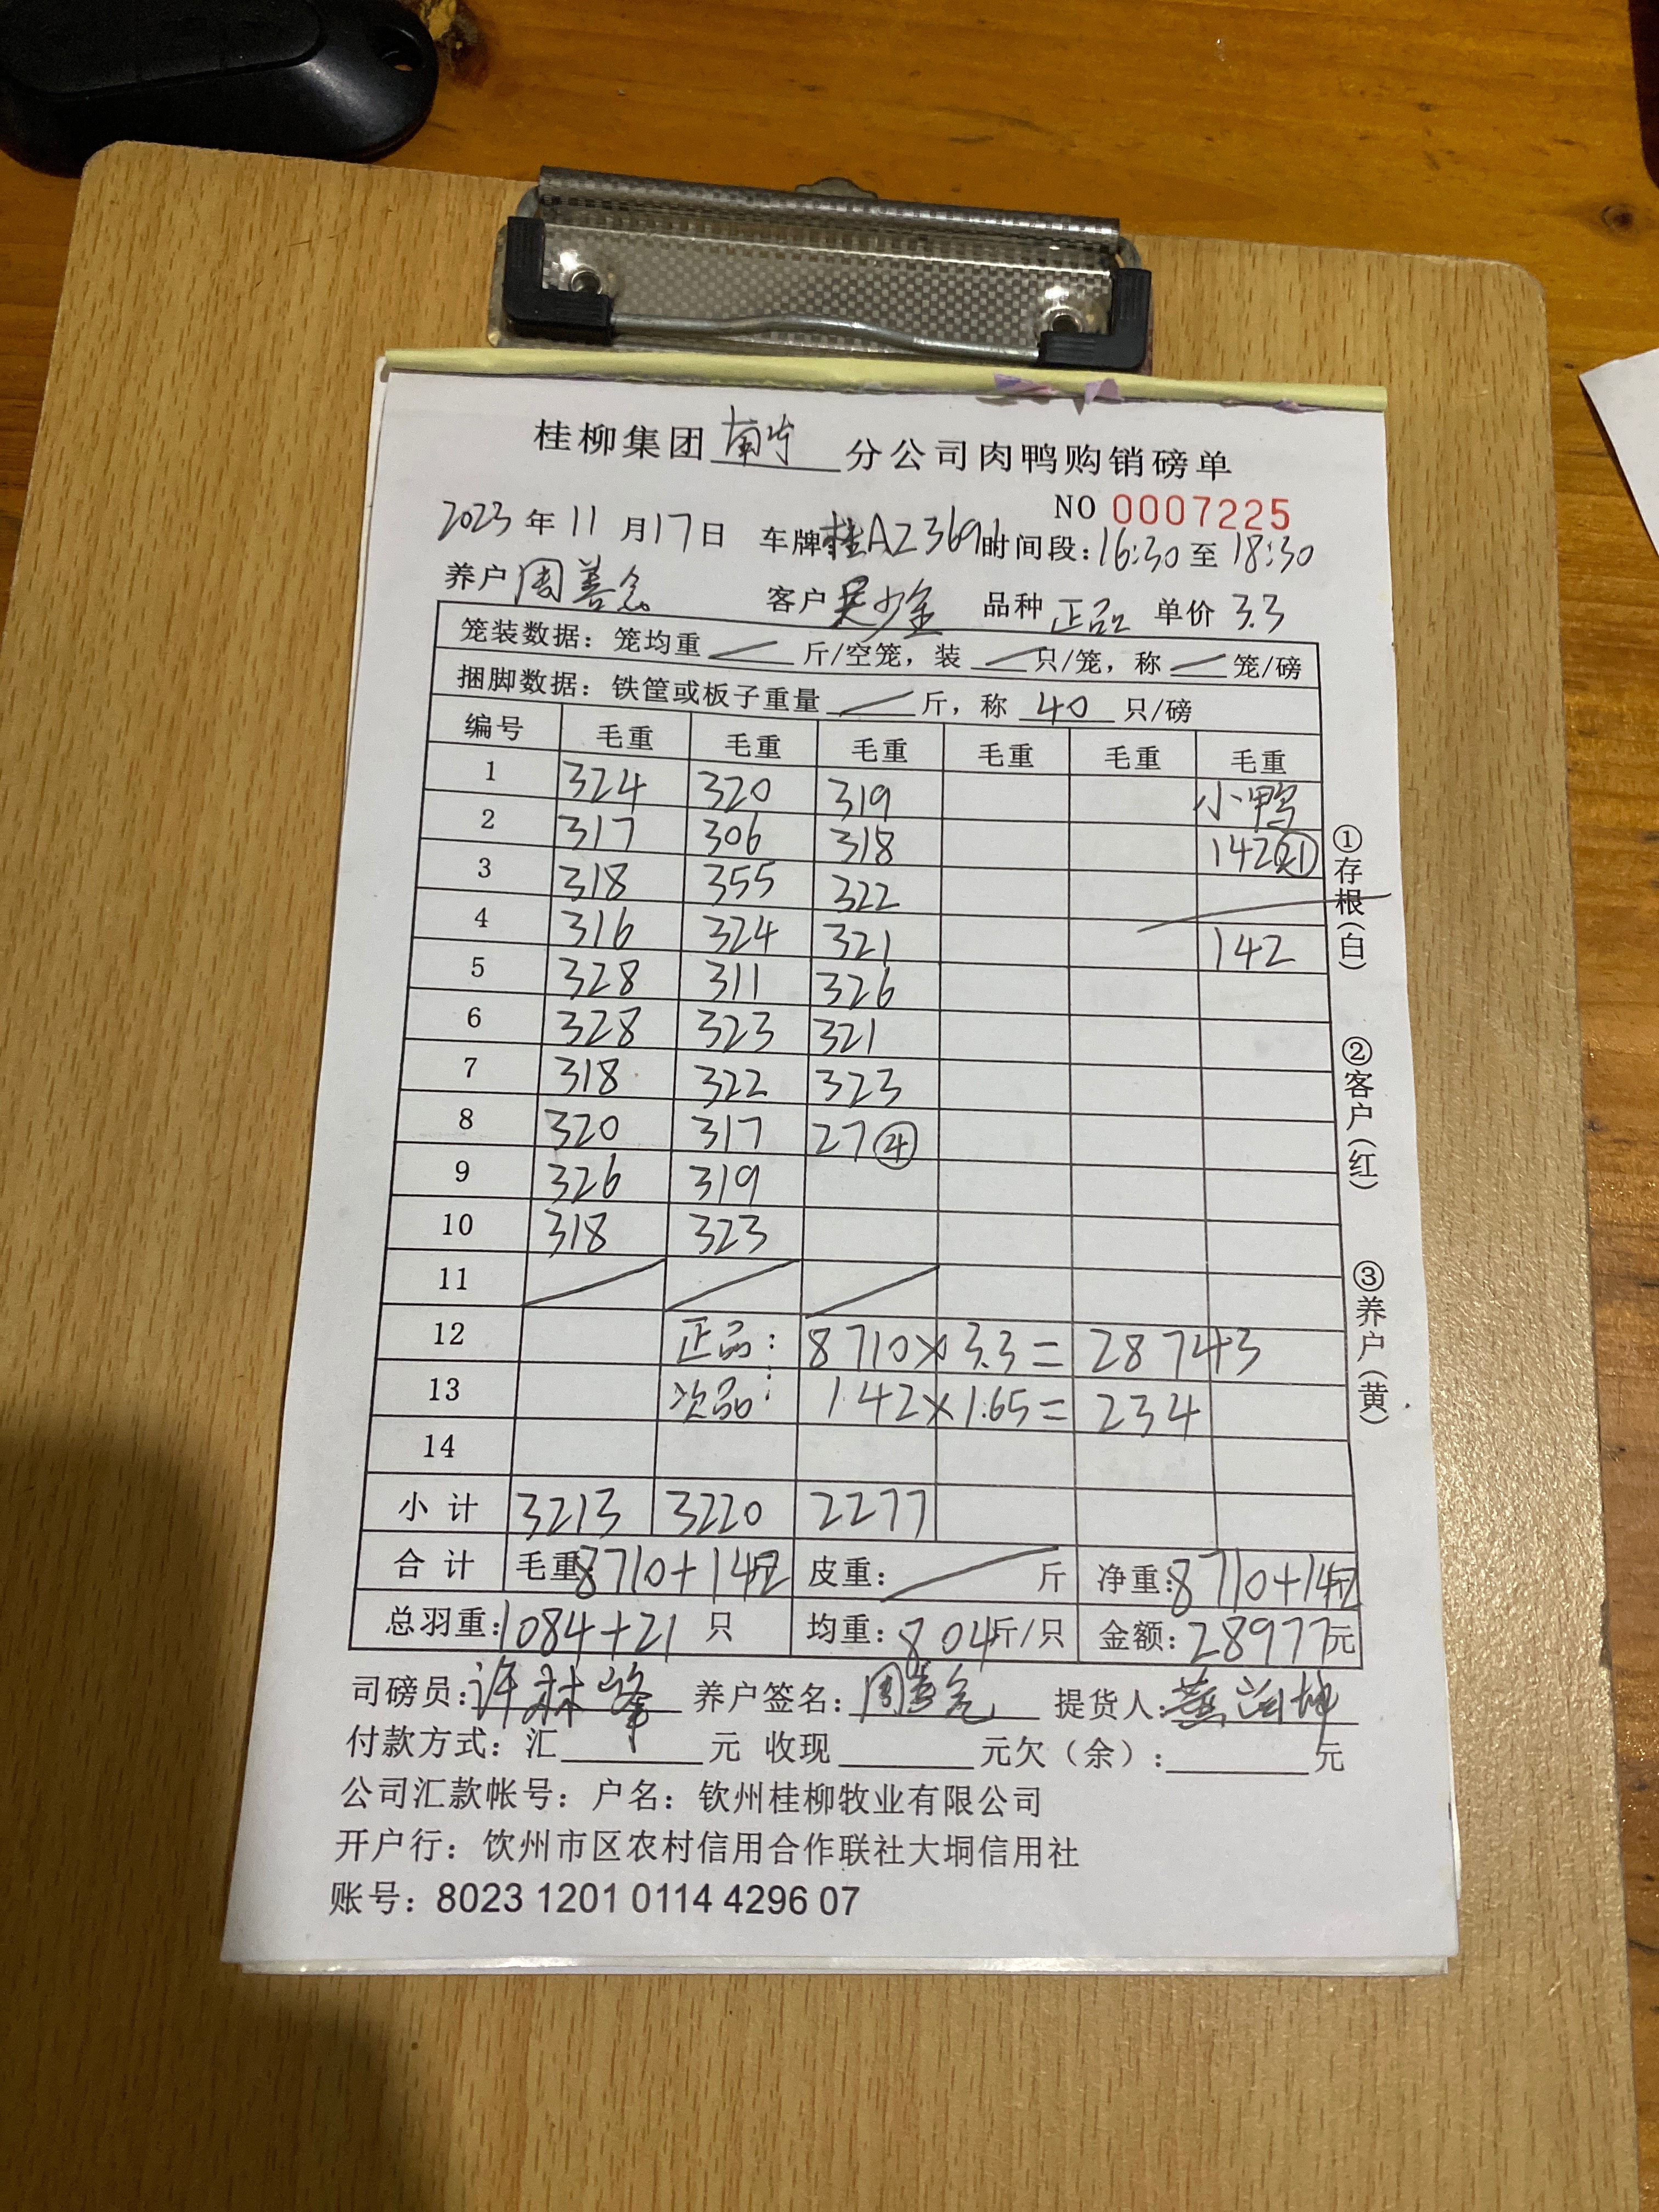 桂柳集团南宁分公司肉鸭购销磅单
NO 0007225
2023年11月17日 车牌桂AZ369 时间段:16:30至18:30
养户周善 客户吴少全 品种正品 单价3.3
笼装数据:笼均重 斤/空笼,装 只/笼,称 笼/磅
捆脚数据:铁筐或板子重量 斤,称 40 只/磅
编号 毛重 毛重 毛重 毛重 毛重 毛重
1 324 320 319 小鸭
2 317 306 318 142㉑
3 318 355 322
4 316 324 321 142
5 328 311 326
6 328 323 321
7 318 322 323
8 320 317 27④
9 326 319
10 318 323
11
12 正品: 8710×3.3= 28743
13 次品: 142×1.65= 234
14
小计 3213 3220 2277
合计 毛重:8710+142 皮重: 斤 净重:8710+142
总羽重:1084+21只 均重:8.04斤/只 金额:28977元
①存根(白)
②客户(红)
③养户(黄)
司磅员:许林峰 养户签名:周善 提货人:
付款方式:汇 元 收现 元欠(余): 元
公司汇款帐号:户名:钦州桂柳牧业有限公司
开户行:钦州市区农村信用合作联社大垌信用社
账号:8023 1201 0114 4296 07